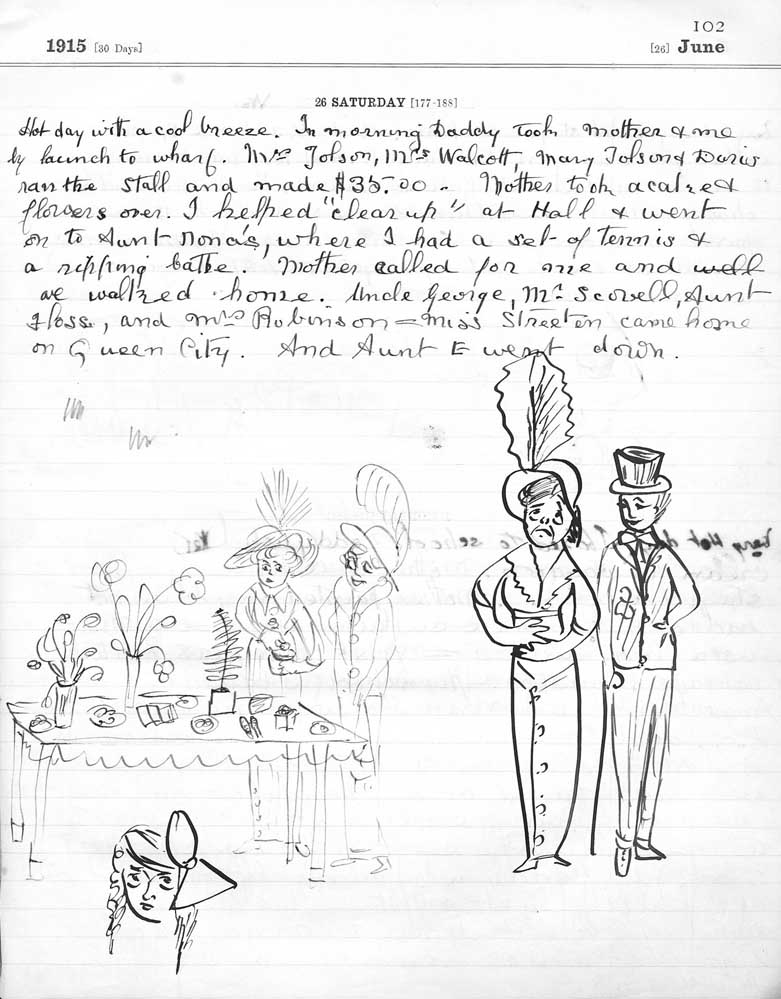 102
1915 [30 Days] [26] June
26 SATURDAY [177-188]
Hot day with a cool breeze. In morning Daddy took Mother & me
by launch to wharf. Mrs Tolson, Mrs Walcott, Mary Tolson & Doris
ran the stall and made $35.00 - Mother took a cake &
flowers over. I helped "clear up" at Hall & went
on to Aunt Nona's, where I had a set of tennis &
a ripping bathe. Mother called for me and well
we walked home. Uncle George, Mr Scovell, Aunt
Floss, and Mrs Robinson = Miss Streeten came home
on Queen City. And Aunt E went down.
Very Hot day